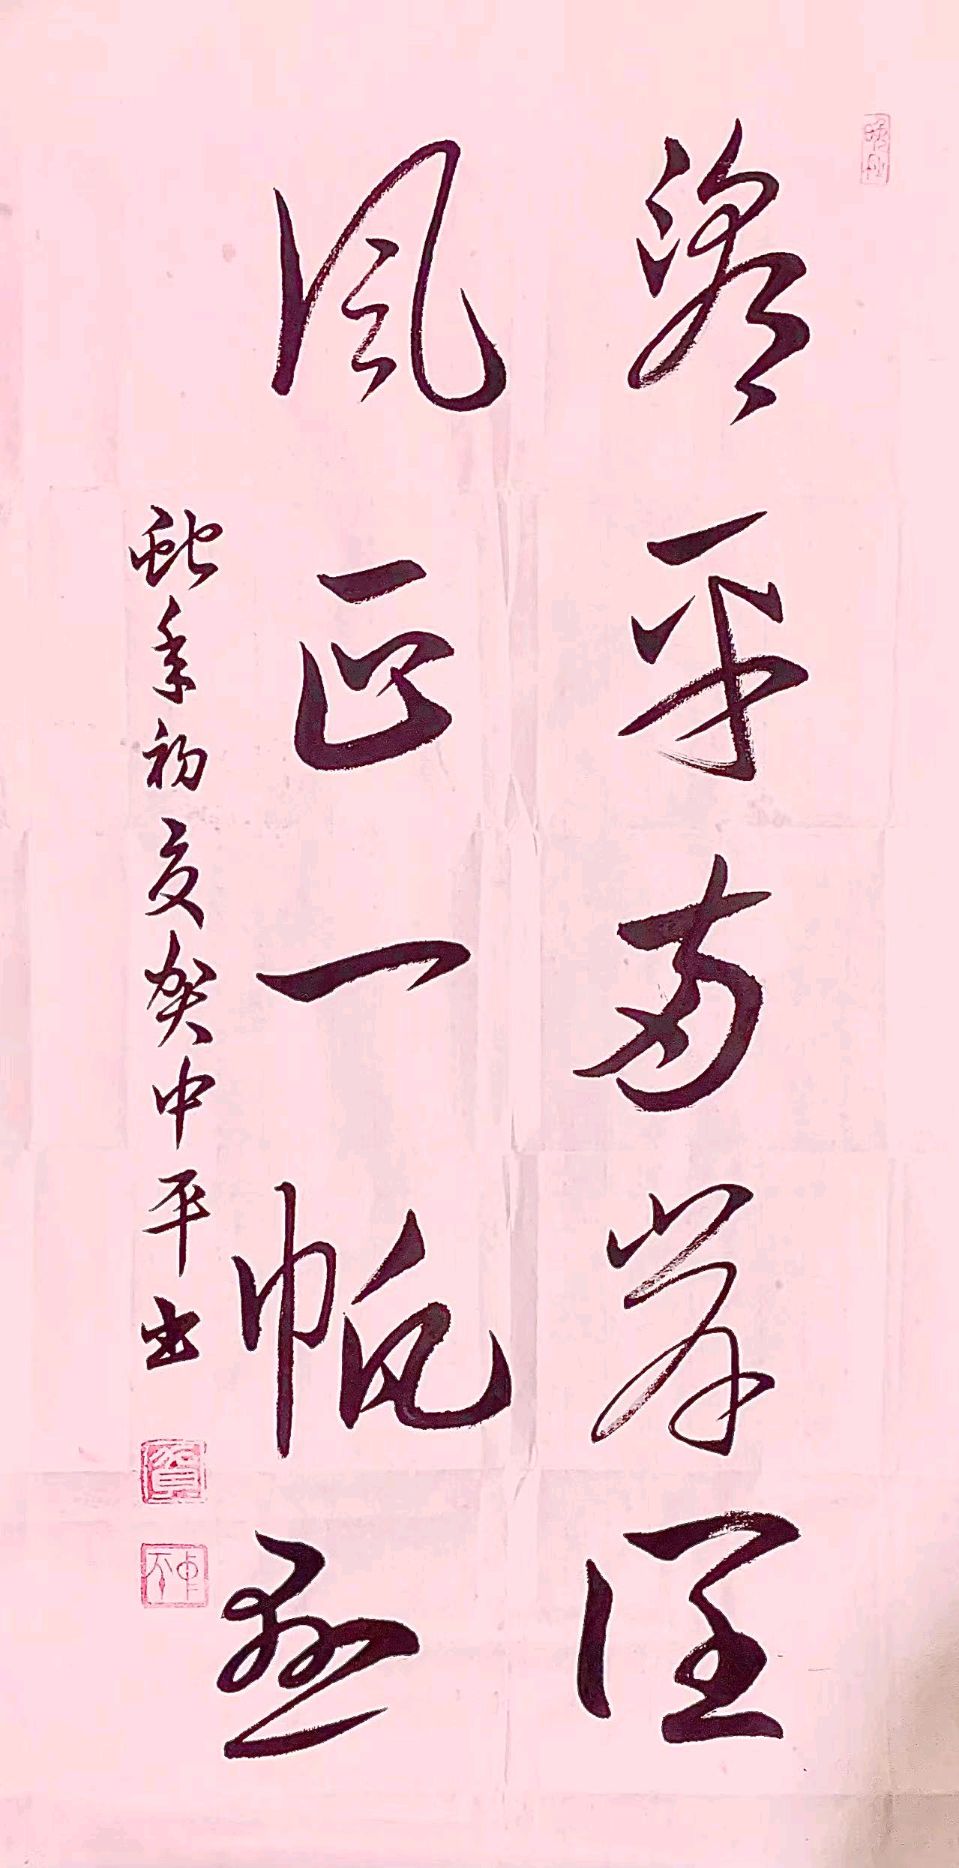 潮平两岸阔
风正一帆悬
蛇年初夏贺中平书